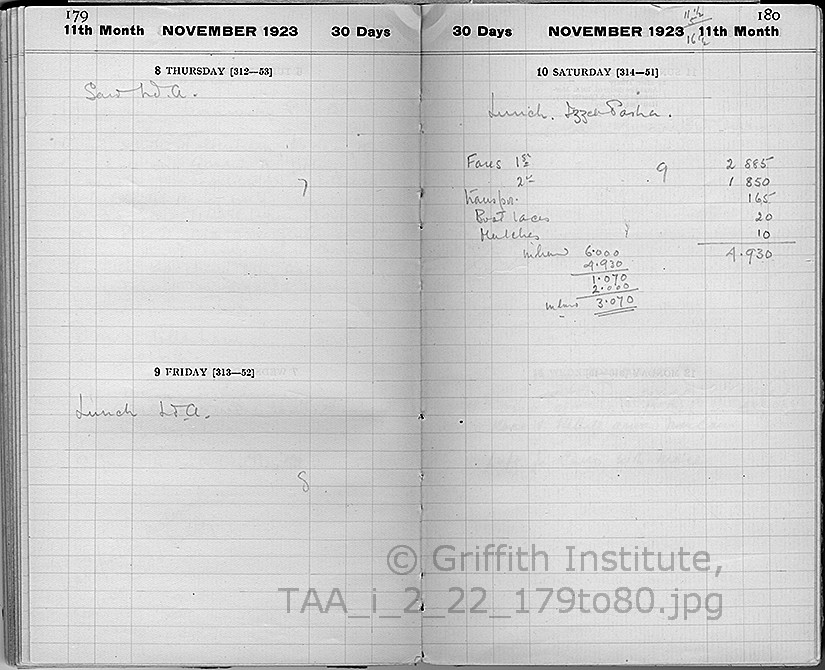 179
11th Month NOVEMBER 1923 30 Days
8 THURSDAY [312—53]
Saw Ld. A.
7
9 FRIDAY [313—52]
Lunch Ld. A.
8
180
30 Days NOVEMBER 1923 11th Month
16½
10 SATURDAY [314—51]
Lunch. Izzet Pasha.
Fares 1st 9 2 885
2nd 1 850
transpor. 165
Boot laces 20
Matches 10
6.000 4.930
4.930
1.070
2.000
3.070
© Griffith Institute,
TAA_i_2_22_179to80.jpg